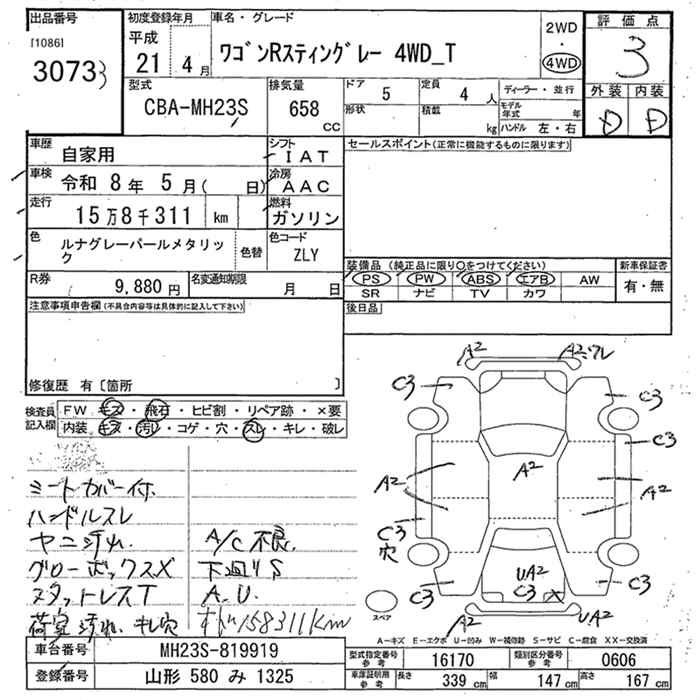 出品番号
[1086]
3073
初度登録年月
平成
21 4月
車名・グレード
ワゴンRスティングレー 4WD_T
2WD
・
4WD
評価点
3
外装 内装
D D
型式
CBA-MH23S
排気量
658
CC
ドア
5
定員
4 人
形状
積載
kg
ディーラー・並行
モデル年式 年
ハンドル 左・右
車歴
自家用
シフト
IAT
セールスポイント(正常に機能するものに限ります)
車検
令和 8年 5月( 日)
冷房
AAC
走行
15万8千311 km
燃料
ガソリン
色
ルナグレーパールメタリック
色替
色コード
ZLY
R券
9,880 円
名変通知期限
月 日
装備品 (純正品に限り○をつけてください)
PS PW ABS エアB AW
SR ナビ TV カワ
新車保証書
有・無
後日品
注意事項申告欄(不具合内容等は具体的に記入して下さい)
修復歴 有〔箇所 〕
検査員記入欄
FW キズ・飛石・ヒビ割・リペア跡・×要
内装 キズ・汚レ・コゲ・穴・スレ・キレ・破レ
シートカバー付
ハンドルスレ
ヤニ汚レ A/C不良
グローボックスX 下廻りS
スタットレスT A.U.
荷室汚れ、キレ穴 158311km
A2 A2 ワレ
C3 C3
C3
A2
A2 A2
C3
穴
UA2
C3 X
C3 C3
A2 UA2
スペア
A-キズ E-エクボ U-凹み W-補修跡 S-サビ C-腐食 XX-交換済
車台番号
MH23S-819919
登録番号
山形 580 み 1325
型式指定番号
参考
16170
類別区分番号
参考
0606
車庫証明用
参考
長さ
339 cm
幅
147 cm
高さ
167 cm